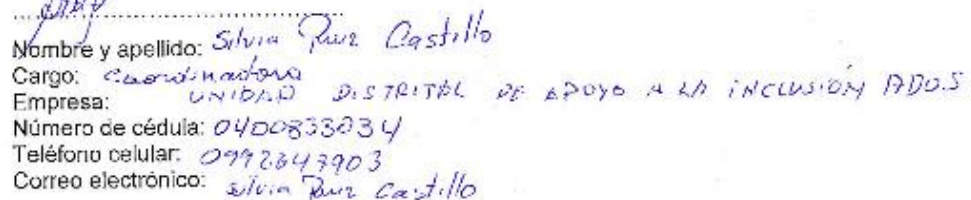 Nombre y apellido: Silvia Ruiz Castillo
Cargo: Coordinadora
Empresa: UNIDAD DISTRITAL DE APOYO A LA INCLUSIÓN
Número de cédula: 0400833034
Teléfono celular:
Correo electrónico: silvia Ruiz Castillo